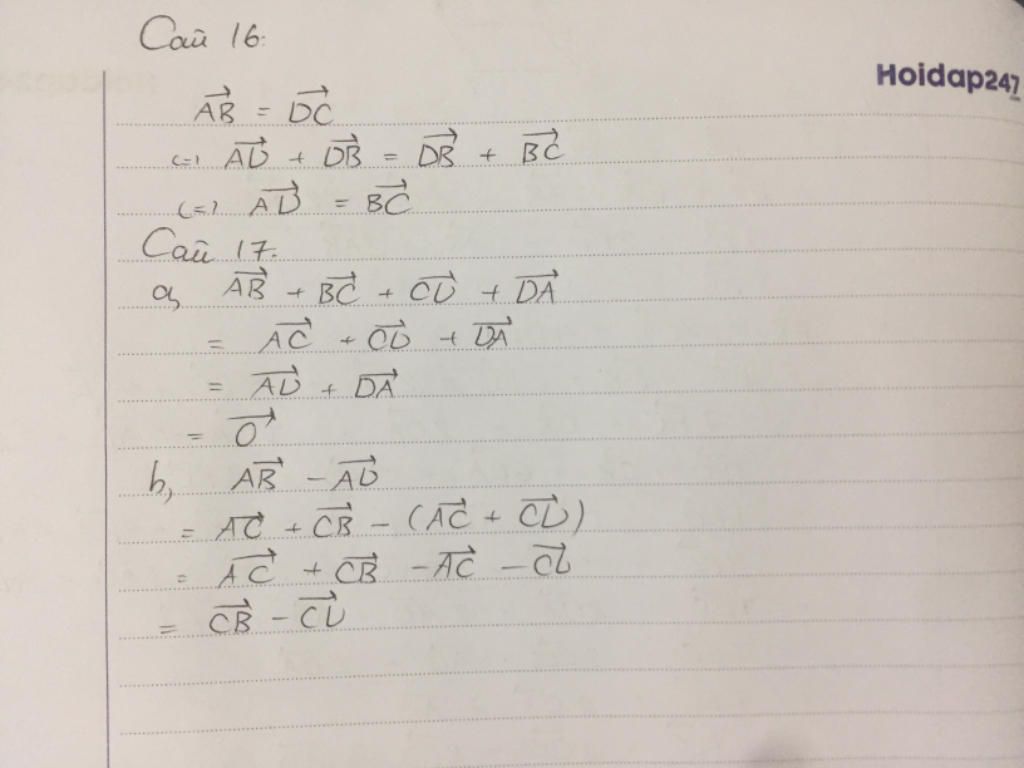 Câu 16:
Hoidap247
$\overrightarrow{AB} = \overrightarrow{DC}$
(=) $\overrightarrow{AD} + \overrightarrow{DB} = \overrightarrow{DB} + \overrightarrow{BC}$
(=) $\overrightarrow{AD} = \overrightarrow{BC}$
Câu 17.
a, $\overrightarrow{AB} + \overrightarrow{BC} + \overrightarrow{CD} + \overrightarrow{DA}$
= $\overrightarrow{AC} + \overrightarrow{CD} + \overrightarrow{DA}$
= $\overrightarrow{AD} + \overrightarrow{DA}$
= $\overrightarrow{O}$
b, $\overrightarrow{AB} - \overrightarrow{AD}$
= $\overrightarrow{AC} + \overrightarrow{CB} - (\overrightarrow{AC} + \overrightarrow{CD})$
= $\overrightarrow{AC} + \overrightarrow{CB} - \overrightarrow{AC} - \overrightarrow{CD}$
= $\overrightarrow{CB} - \overrightarrow{CD}$